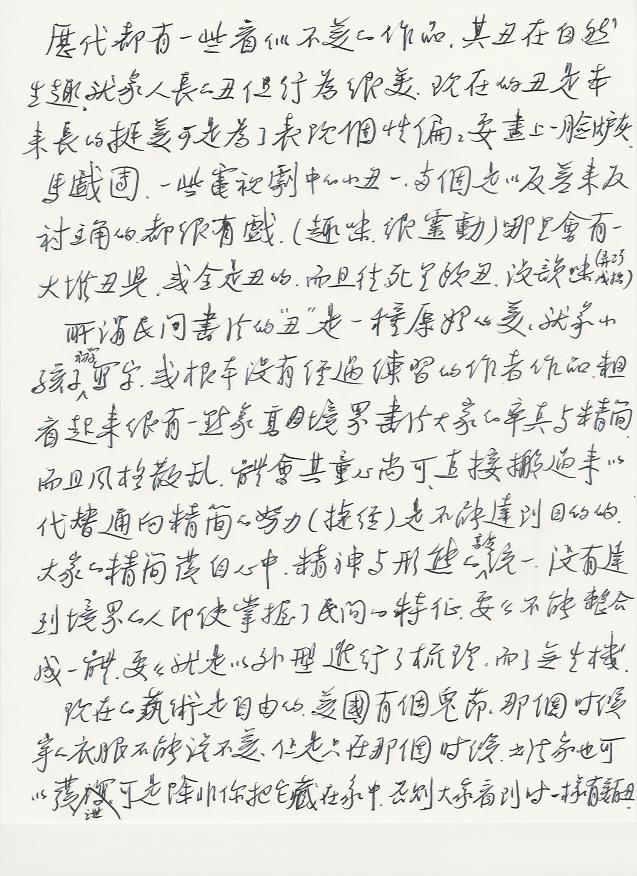 歷代都有一些看似不美的作品,其丑在自然
生趣,就象人長的丑但行為很美.現在的丑是本
來長的挺美可是為了表現個性偏々要畫上一臉爐灰.
馬戲團.一些電視劇中的小丑一方個是以反差來反
襯主角的.都很有戲.(趣味.很靈動)哪里會有一
大堆丑兒,或全是丑的.而且往死里的丑,沒韻味(弄巧成拙)
所謂民间書法的"丑"是一種原始的美.就象小
孩子初學寫字.或根本沒有經過練習的作者作品.粗
看起來很有一點象高層境界書法大家的率真与精简
而且风格散乱.體會其童心尚可.直接搬過來以
代替通向精简的努力(捷徑)是不能達到目的的.
大家的精简蘊自心中.精神与形態的高度統一.沒有達
到境界的人即使掌握了民间的特征.要么不能整合
成一體.要么就是以外型進行了梳理.而了無生機.
現在的藝術是自由的.美國有個鬼節.那個时候
穿的衣服不能說不美.但是只在那個时候.书法家也可
以這樣.可是除非你把它藏在家中.否則大家看到时一樣有頭丑